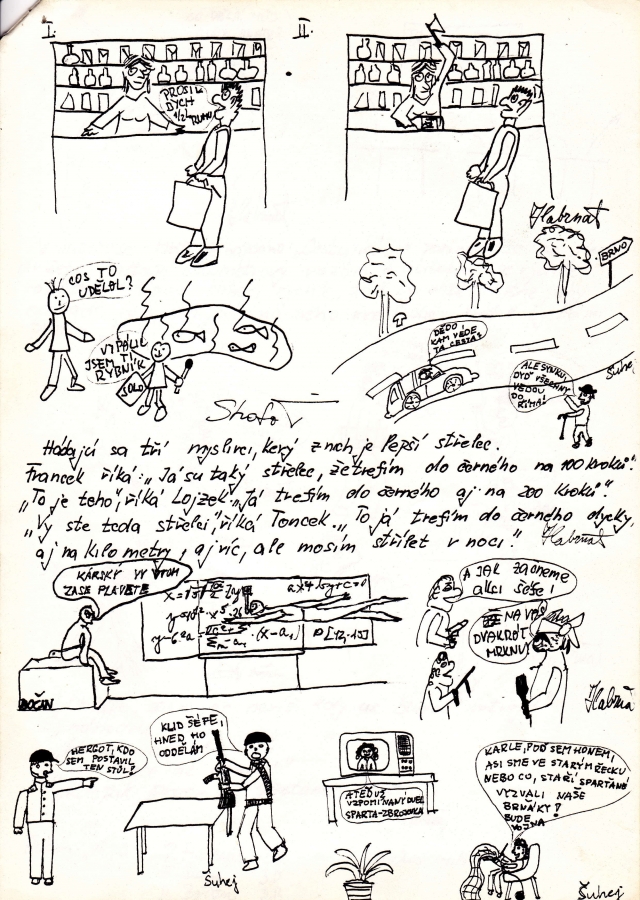 I.
II.
PROSIL
BYCH
1/2l RUMU
Habrnát
COS TO
UDĚLOL?
VYPÁLIL
JSEM TI
RYBNÍK
JOLO
BRNO
DĚDO
KAM VEDE
TA CESTA?
ALE SYNKU,
DYŤ VŠECKNY
VEDOU
DO
ŘÍMA!
Šuhej
Hádajú sa tří myslivci, kerý z nich je lepší střelec.
Francek říká: „Já su taký střelec, že trefím do černého na 100 kroků."
„To je teho", říká Lojzek „Já trefím do černého aj na 200 kroků".
„Vy ste teda střelci", říká Toncek. „To já trefím do černého dycky,
aj na kilometry, aj víc, ale mosím střílet v noci." Habrnát
KÁRSKÝ VY V TOM
ZASE PLAVETE
BOČAN
A JAK ZAČNEME
AKCI ŠÉFE?
NA VÁS
DVAKRÁT
MRKNU
Habrnát
HERGOT, KDO
SEM POSTAVIL
TEN STŮL?
KLID ŠÉFE,
HNED HO
ODDĚLÁM
Šuhej
A TEĎ UŽ
VZPOMÍNANÝ DUEL
SPARTA-ZBROJOVKA
KARLE, POĎ SEM HONEM,
ASI SME VE STARÝM ŘECKU
NEBO CO, STAŘÍ SPARŤANÉ
VYZVALI NAŠE
BRŇÁKY!
BUDE
VOJNA
Šuhej